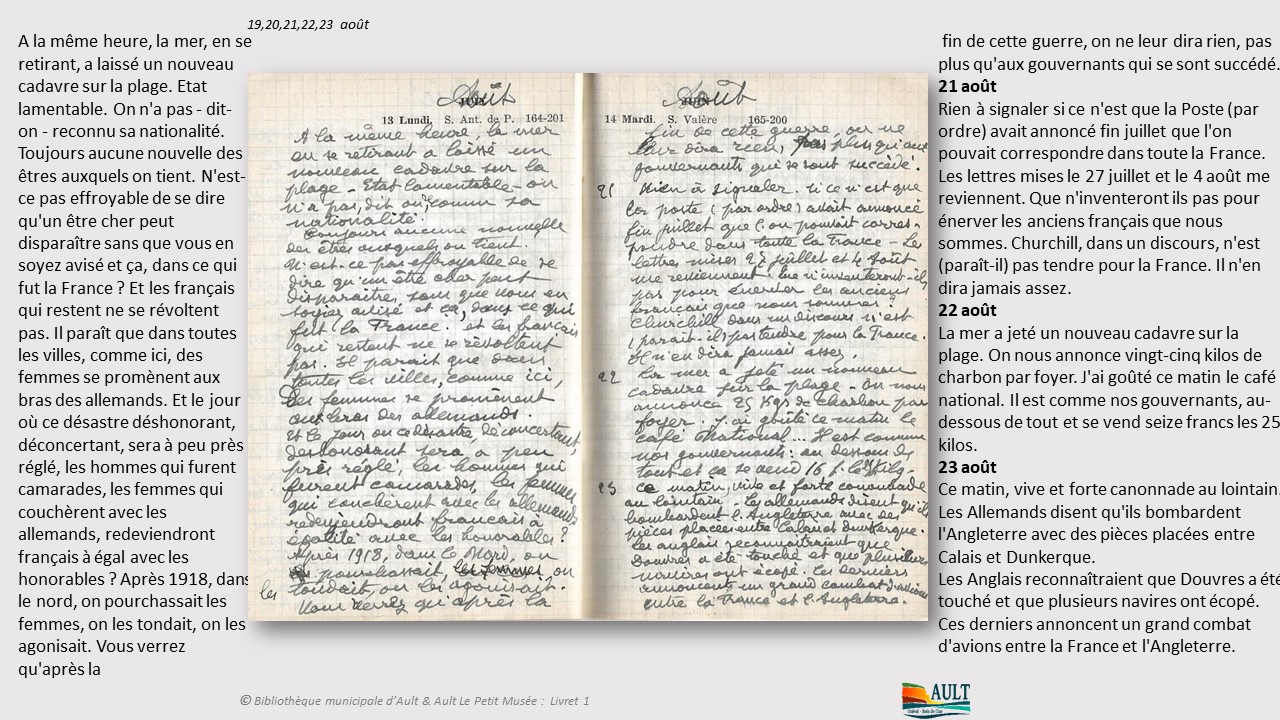 19,20,21,22,23 août
A la même heure, la mer, en se
retirant, a laissé un nouveau
cadavre sur la plage. Etat
lamentable. On n'a pas - dit-
on - reconnu sa nationalité.
Toujours aucune nouvelle des
êtres auxquels on tient. N'est-
ce pas effroyable de se dire
qu'un être cher peut
disparaître sans que vous en
soyez avisé et ça, dans ce qui
fut la France ? Et les français
qui restent ne se révoltent
pas. Il paraît que dans toutes
les villes, comme ici, des
femmes se promènent aux
bras des allemands. Et le jour
où ce désastre déshonorant,
déconcertant, sera à peu près
réglé, les hommes qui furent
camarades, les femmes qui
couchèrent avec les
allemands, redeviendront
français à égal avec les
honorables ? Après 1918, dans
le nord, on pourchassait les
femmes, on les tondait, on les
agonisait. Vous verrez
qu'après la
Août
13 Lundi. S. Ant. de P. 164-201
A la même heure, la mer
en se retirant a laissé un
nouveau cadavre sur la
plage - Etat lamentable - on
n'a pas, dit on, reconnu sa
nationalité.
Toujours aucune nouvelle
des êtres auxquels on tient.
N'est-ce pas effroyable de se
dire qu'un être cher peut
disparaître, sans que vous en
soyez avisé et ça, dans ce qui
fut la France. et les français
qui restent ne se révoltent
pas. Il parait que dans
toutes les villes, comme ici,
des femmes se promènent
aux bras des allemands.
Et le jour ou ce désastre déconcertant,
deshonorant sera a peu
près réglé, les hommes qui
furent camarades, les femmes
qui couchèrent avec les allemands
redeviendront français à
égalité avec les honorables ?
Après 1918, dans le Nord, on
pourchassait, les femmes, on
les tondait, on les agonisait.
Vous verrez qu'après la
Août
14 Mardi. S. Valère 165-200
fin de cette guerre, on ne
leur dira rien, pas plus qu'aux
gouvernants qui se sont succédé.
21 Rien à signaler. si ce n'est que
la poste (par ordre) avait annoncé
fin juillet que l'on pouvait corres-
pondre dans toute la France - Les
lettres mises 27 juillet et 4 Août
me reviennent. Que n'inventeront-ils
pas pour énerver les anciens
français que nous sommes ?
Churchill dans un discours n'est
(parait-il) pas tendre pour la France.
Il n'en dira jamais assez.
22 La mer a jeté un nouveau
cadavre sur la plage - On nous
annonce 25 Kgs de charbon par
foyer. J'ai goûté ce matin le
café National... Il est comme
nos gouvernants : au dessous de
tout et ça se vend 16 f. les kils -
23 ce matin, vive et forte canonnade
au lointain. les allemands disent qu'ils
bombardent l'Angleterre avec des
pièces placées entre Calais et Dunkerque.
les anglais reconnaitraient que
Douvres a été touché et que plusieurs
navires ont écopé. les derniers
annoncent un grand combat d'avions
entre la France et l'Angleterre.
fin de cette guerre, on ne leur dira rien, pas
plus qu'aux gouvernants qui se sont succédé.
21 août
Rien à signaler si ce n'est que la Poste (par
ordre) avait annoncé fin juillet que l'on
pouvait correspondre dans toute la France.
Les lettres mises le 27 juillet et le 4 août me
reviennent. Que n'inventeront ils pas pour
énerver les anciens français que nous
sommes. Churchill, dans un discours, n'est
(paraît-il) pas tendre pour la France. Il n'en
dira jamais assez.
22 août
La mer a jeté un nouveau cadavre sur la
plage. On nous annonce vingt-cinq kilos de
charbon par foyer. J'ai goûté ce matin le café
national. Il est comme nos gouvernants, au-
dessous de tout et se vend seize francs les 25
kilos.
23 août
Ce matin, vive et forte canonnade au lointain.
Les Allemands disent qu'ils bombardent
l'Angleterre avec des pièces placées entre
Calais et Dunkerque.
Les Anglais reconnaîtraient que Douvres a été
touché et que plusieurs navires ont écopé.
Ces derniers annoncent un grand combat
d'avions entre la France et l'Angleterre.
© Bibliothèque municipale d'Ault & Ault Le Petit Musée : Livret 1
AULT
Onival - Bois de Cise